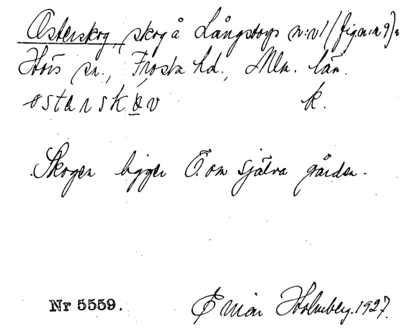 Österskog, skog å Långstorps nr:1
Hörs sn., Frosta hd., Mlm. län.
ostanskåv k.
Skogen ligger Ö. om själva gården.
Nr 5559. Einar Holmberg. 1927.